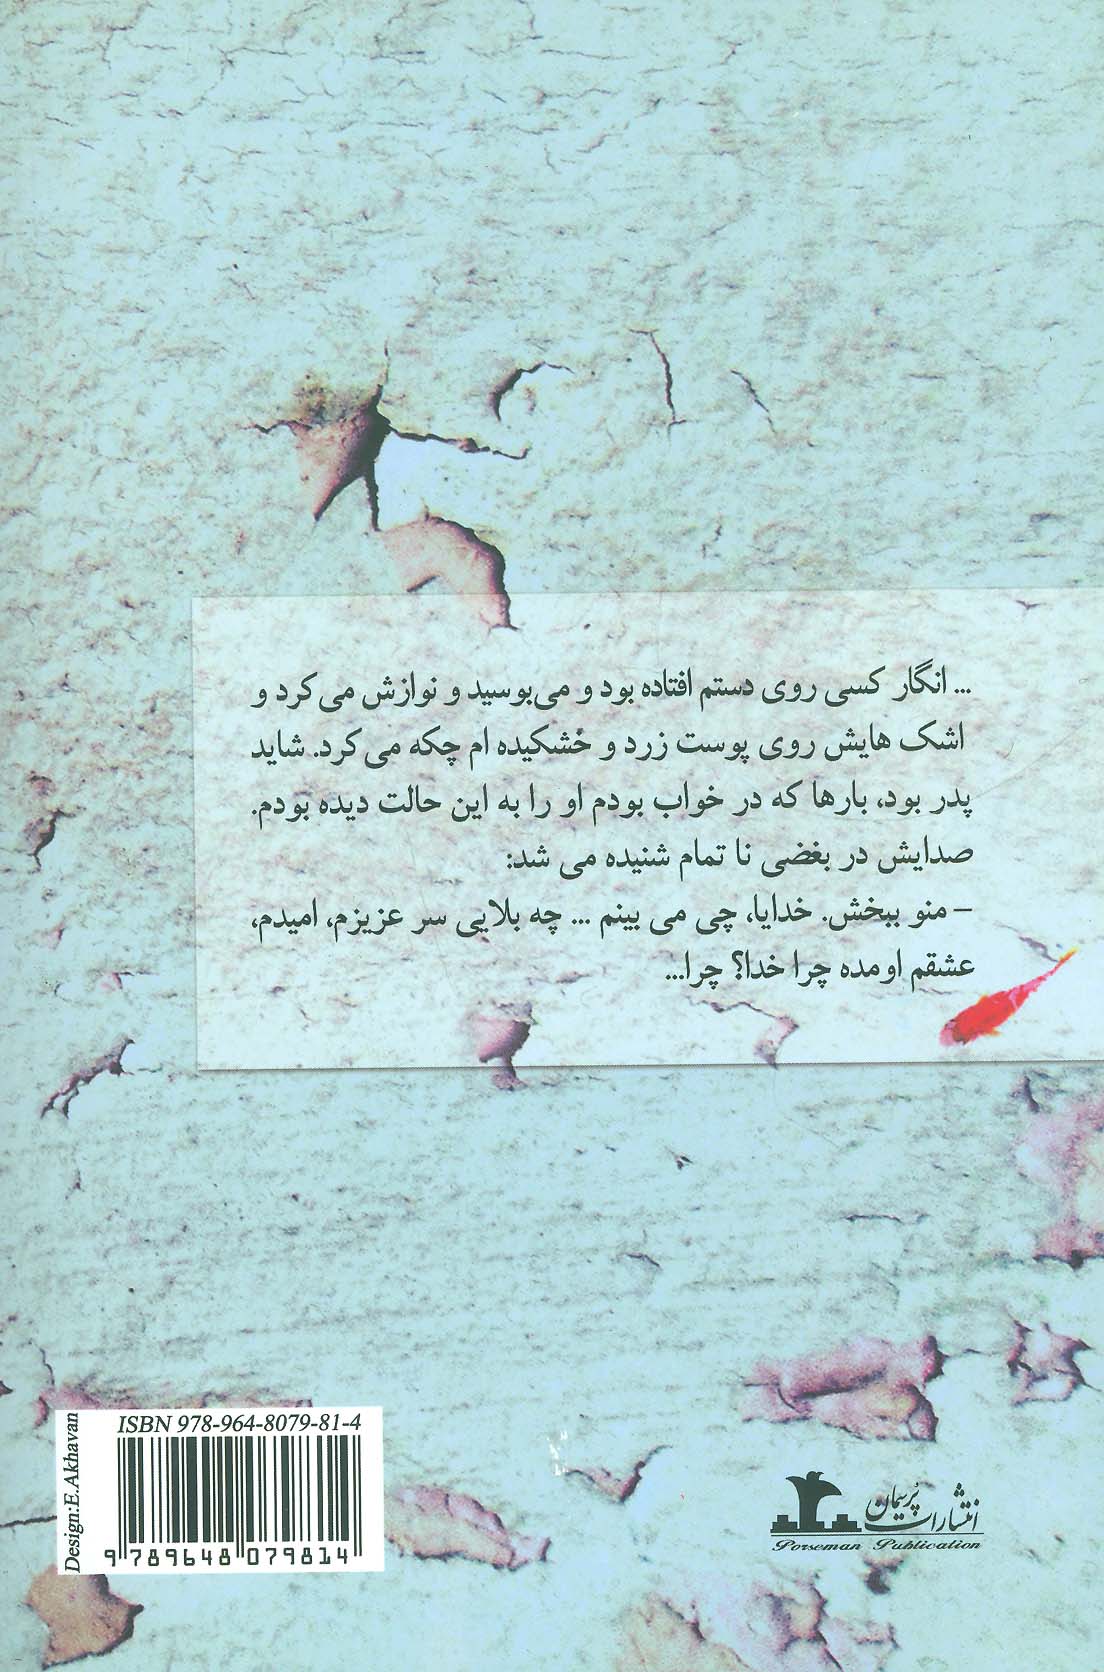 ... انگار کسی روی دستم افتاده بود و می‌بوسید و نوازش می‌کرد و
اشک هایش روی پوست زرد و خشکیده ام چکه می کرد. شاید
پدر بود، بارها که در خواب بودم او را به این حالت دیده بودم.
صدایش در بغضی نا تمام شنیده می شد:
– منو ببخش. خدایا، چی می بینم ... چه بلایی سر عزیزم، امیدم،
عشقم اومده چرا خدا؟ چرا...
ISBN 978-964-8079-81-4
9 789648 079814
Design:E.Akhavan
انتشارات پُرسمان
Porseman Publication